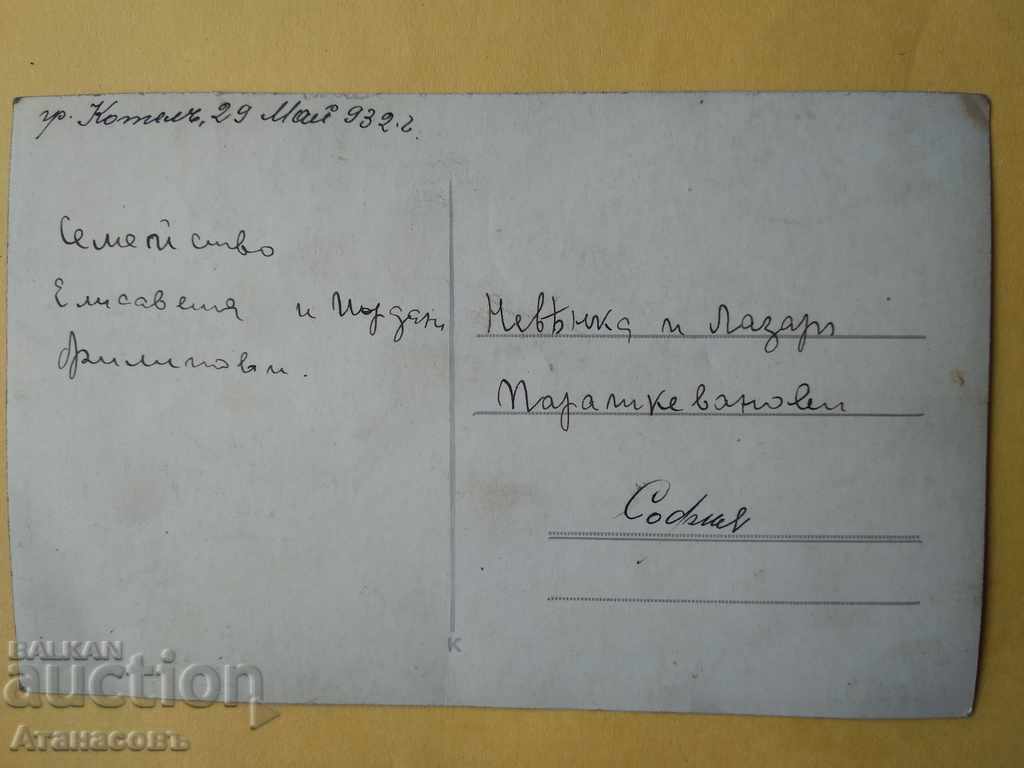 гр. Котелъ, 29 Май 932.г.
Семейство
Елисавета и Йордан
Филипови.
Невѣнка и Лазаръ
Парашкеванови
София
K
BALKAN
auction
Атанасовъ